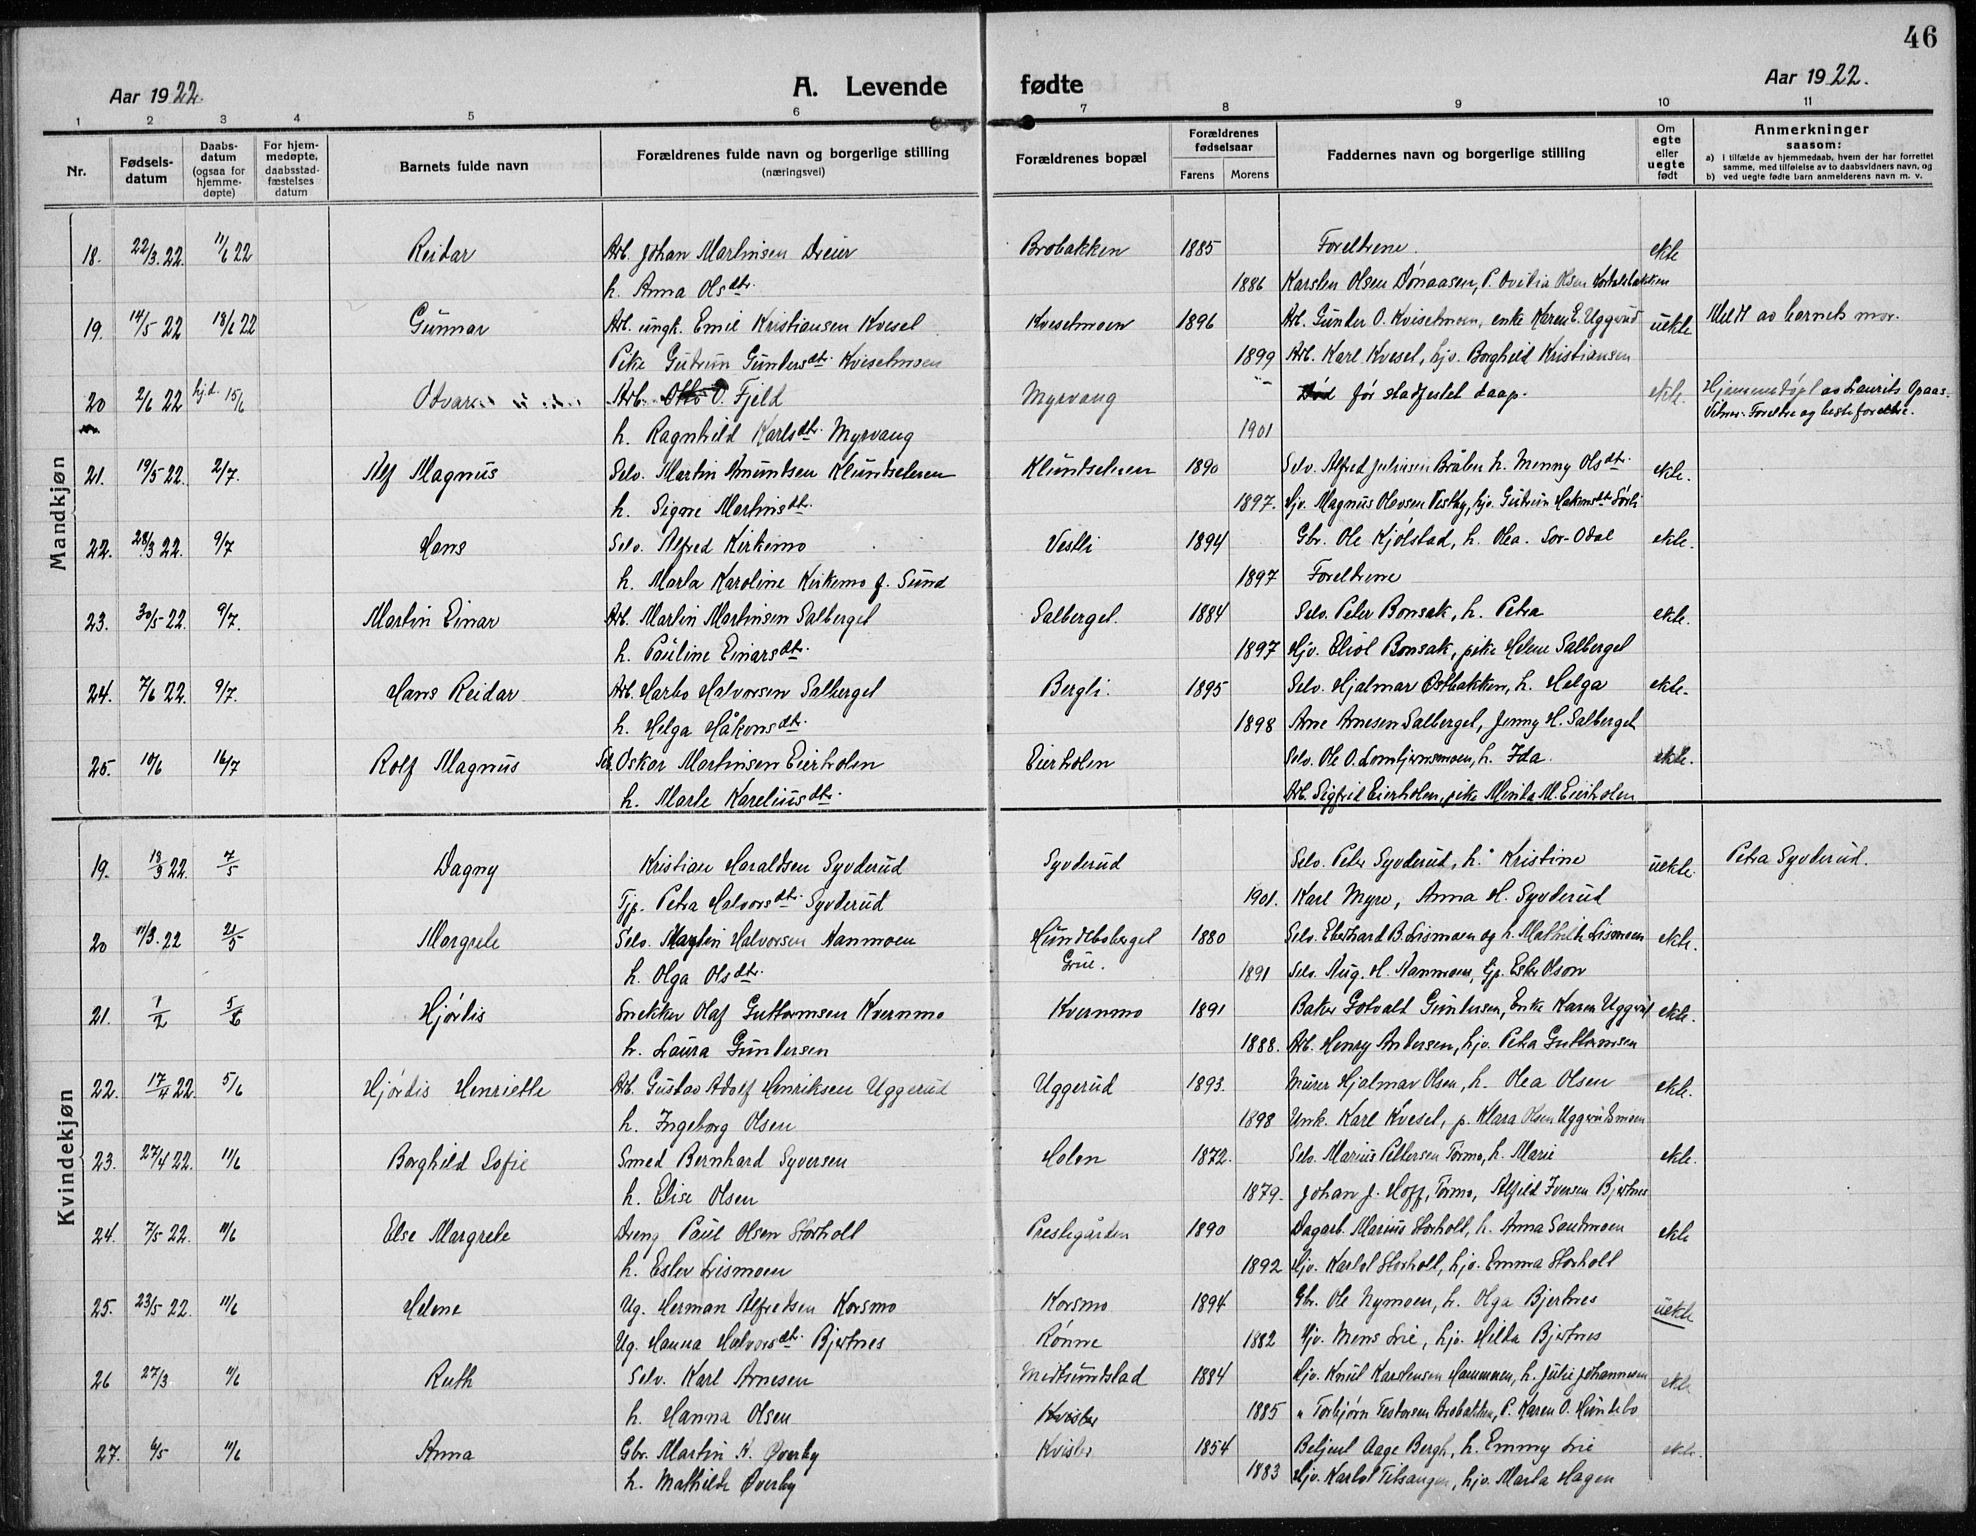 46
Aar 1922. A. Levende fødte Aar 1922.
1 2 3 4 5 6 7 8 9 10 11
Nr. Fødsels-datum Daabs-datum (ogsaa for hjemme-døpte) For hjem-medøpte, daabsstad-fæstelses datum Barnets fulde navn Forældrenes fulde navn og borgerlige stilling (næringsvei) Forældrenes bopæl Forældrenes fødselsaar Farens Morens Faddernes navn og borgerlige stilling Om egte eller uegte født Anmerkninger saasom:
a) i tilfælde av hjemmedaab, hvem der har forrettet samme, med tilføielse av to daabsvidners navn, og
b) ved uegte fødte barn anmelderens navn m. v.
Mandkjøn
18. 22/3. 22. 11/6 22 Reidar Arb. Johan Martinsen Dreier Brobakken 1885 Foreldrene. ekte
h. Anna Olsdtr. 1886 Karsten Olsen Dønaasen, P. Ovilia Olsen
19. 14/5 22 18/6 22 Gunnar Arb. ungk. Emil Kristiansen Kvesel Kveselmoen 1896 Arb. Gunder O. Kviselmoen, enke Karen E. Uggerud uekte Meldt av barnets mor.
Pike Gudrun Gundersdtr. Kviselmoen 1899 Arb. Karl Kvesel, hjv. Borghild Kristiansen
20 2/6 22 hjd. 15/6 Odvar Arb. Otto O. Fjeld Myrvang Død før stadfestet daap. ekte. Hjemmedøpt av Laurits Opaas.
h. Ragnhild Karlsdtr. Myrvang 1901 Vitner: Foreldre og besteforeldre.
21. 19/5 22. 2/7. Alf Magnus Selv. Martin Amundsen Klundseteren Klundseteren 1890 Selv. Alfred Juliussen Bråten h. Menny Olsdtr. ekte.
h. Signe Martinsdtr. 1897. Hjv. Magnus Olavsen Vestby, hjv. Gudrun Hakonsdtr. Sørli
22. 28/3 22. 9/7 Hans Selv. Alfred Kirkemo Vestli 1894 Gbr. Ole Kjølstad, h. Olea. Sør-Odal ekte.
h. Marta Karoline Kirkemo f. Sund 1897 Foreldrene
23. 30/5- 22. 9/7. Martin Einar Arb. Martin Martinsen Salberget Salberget. 1884 Selv. Peter Bonsak, h. Petra ekte.
h. Pauline Einarsdtr. 1897 Hjv. Eliot Bonsak, pike Helene Salberget
24. 7/6 22. 9/7. Hans Reidar. Arb. Harbo Halvorsen Salberget Bergli. 1895 Selv. Hjalmar Østbakken, h. Helga ekte.
h. Helga Håkonsdtr. 1898 Arne Arnesen Salberget, Jenny H. Salberget
25. 10/6 16/7 Rolf Magnus Selv. Oskar Martinsen Eierholen Eierholen Selv. Ole O. Lomtjernsmoen, h. Ida. ekte.
h. Marte Kareliusdtr. Arb. Sigfrid Eierholen, pike Minda M. Eierholen
Kvindekjøn
19. 18/3 22. 7/5 Dagny Kristian Haraldsen Syverud Syverud Selv. Peter Syverud, h. Kristine uekte. Petra Syverud.
Tjp. Petra Halvorsdtr. Syverud 1901. Karl Myre, Anna H. Syverud
20 11/3. 22 21/5 Margrete Selv. Martin Halvorsen Nanmoen Hundeboberget 1880 Selv. Eberhard B. Lismoen og h. Mathilde Lismoen ekte.
h. Olga Olsdtr. Grue. 1891 Selv. Aug. H. Nanmoen, tjp. Ester Olson
21. 1/2 5/6 Hjørdis Snekker Olaf Guttormsen Kvernmo Kvernmo 1891 Baker Gotvalt Gundersen, Enke Karen Uggerud ekte.
h. Laura Gundersen 1888. Arb. Henry Andersen, hjv. Petra Guttormsen
22. 17/4 22. 5/6 Hjørdis Henriette Arb. Gustav Adolf Henriksen Uggerud Uggerud 1893. Murer Hjalmar Olsen, h. Olea Olsen ekte.
h. Ingeborg Olsen 1898 Unk. Karl Kvesel, p. Klara Olsen Uggerudsmoen
23. 27/4 22. 11/6 Borghild Sofie Smed Bernhard Syversen Holen 1872. Selv. Marius Pettersen Tormo, h. Marie ekte.
h. Elise Olsen 1879. Johan J. Hoff, Tormo, Alfild Iversen Bjertnes
24. 7/5- 22. 11/6 Else Margrete Dreng Paul Olsen Storholt Prestegården 1890 Dagarb. Marius Storholt, h. Anna Sandmoen ekte
h. Ester Lismoen 1892 Hjv. Karlot Storholt, hjv. Emma Storholt
25. 23/5- 22. 11/6 Helene Ug. Herman Alfredsen Korsmo Korsmo 1894 Gbr. Ole Nymoen, h. Olga Bjertnes uekte
Ug. Hanna Halvorsdtr. Bjertnes Rønne 1882 Hjv. Mons Lie, hjv. Hilda Bjertnes
26 27/3 11/6 Ruth Selv. Karl Arnesen Midtsundstad 1884 Hjv. Knut Karstensen Hammeren, h. Julie Johannesen ekte
h. Hanna Olsen Kvisler 1885 " Torbjørn Testorsen Brobakken, P. Karen O. Hundebo
27. 6/5 11/6 Anna Gbr. Martin K. Øverby Kvisler 1854 Betjent Aage Bergh, h. Emmy Lie ekte.
h. Mathilde Øverby 1883 Hjv. Karlot Titsangen, hjv. Marta Hagen